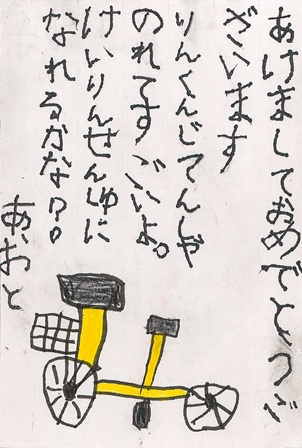 あけましておめでとうご
ざいます
りんくんじてんしゃ
のれてすごいよ。
けいりんせんしゅに
なれるかな??
あおと